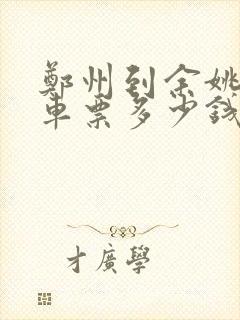 鄭州到余姚
車票多少錢
才廣學